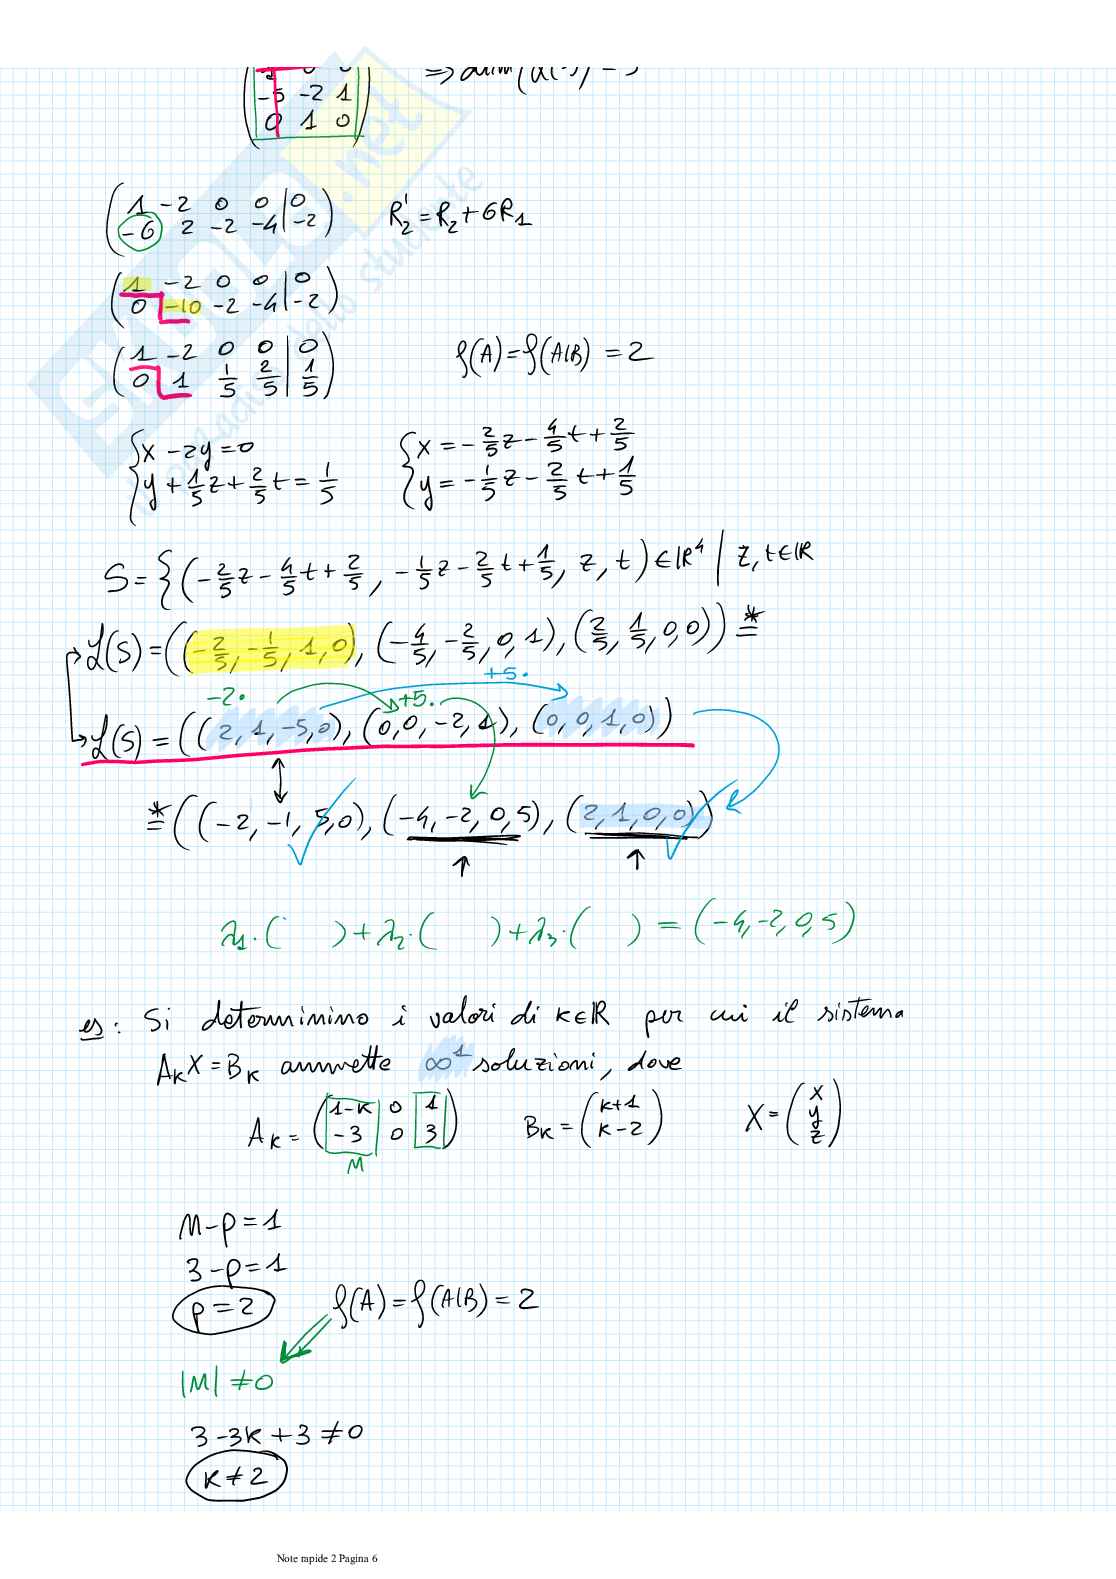 -5 -2 1
0 1 0
( 1 -2 0 0 | 0
-6 2 -2 -4 | -2 ) R₂' = R₂ + 6R₁
( 1 -2 0 0 | 0
0 -10 -2 -4 | -2 )
( 1 -2 0 0 | 0
0 1 1/5 2/5 | 1/5 ) ρ(A) = ρ(A|B) = 2
{ x - 2y = 0 { x = -2/5 z - 4/5 t + 2/5
y + 1/5 z + 2/5 t = 1/5 y = -1/5 z - 2/5 t + 1/5
S = { (-2/5 z - 4/5 t + 2/5, -1/5 z - 2/5 t + 1/5, z, t) ∈ ℝ⁴ | z, t ∈ ℝ
ℒ(S) = ((-2/5, -1/5, 1, 0), (-4/5, -2/5, 0, 1), (2/5, 1/5, 0, 0)) =*
-2· +5· +5·
ℒ(S) = ((2, 1, -5, 0), (0, 0, -2, 1), (0, 0, 1, 0))
=* ((-2, -1, 5, 0), (-4, -2, 0, 5), (2, 1, 0, 0))
λ₁·( ) + λ₂·( ) + λ₃·( ) = (-4, -2, 0, 5)
es: Si determinino i valori di k∈ℝ per cui il sistema
AₖX = Bₖ ammette ∞¹ soluzioni, dove
Aₖ = ( 1-k 0 1
-3 0 3 ) Bₖ = ( k+1
k-2 ) X = ( x
y
z )
M
n - p = 1
3 - p = 1
p = 2 ρ(A) = ρ(A|B) = 2
|M| ≠ 0
3 - 3k + 3 ≠ 0
k ≠ 2
Note rapide 2 Pagina 6